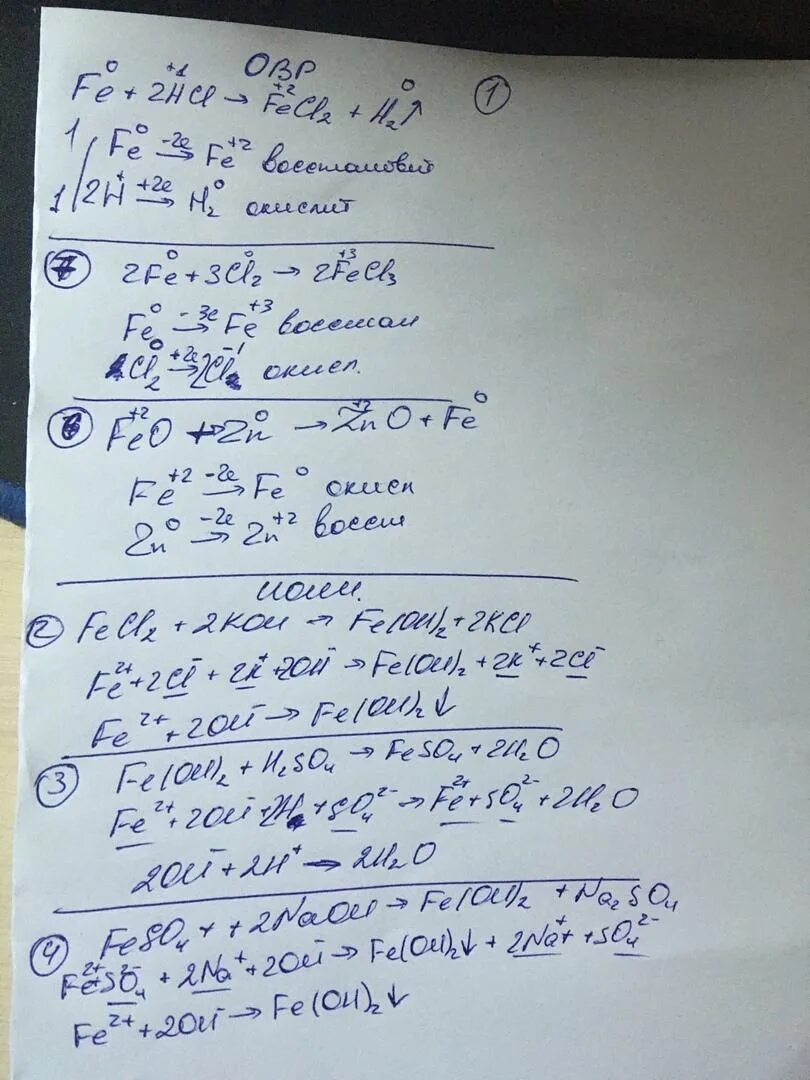 ОВР
Fe⁰ + 2H⁺¹Cl → Fe⁺²Cl₂ + H₂⁰↑ ①
1 | Fe⁰ -2e→ Fe⁺² восстановит
1 | 2H⁺ +2e→ H₂⁰ окислит
⑦ 2Fe⁰ + 3Cl₂⁰ → 2Fe⁺³Cl₃
Fe⁰ -3e→ Fe⁺³ восстан
Cl₂⁰ +2e→ 2Cl⁻¹ окисл.
⑥ Fe⁺²O + Zn⁰ → Zn⁺²O + Fe⁰
Fe⁺² -2e→ Fe⁰ окисл
Zn⁰ -2e→ Zn⁺² восст
② FeCl₂ + 2KOH → Fe(OH)₂ + 2KCl
Fe²⁺ + 2Cl⁻ + 2K⁺ + 2OH⁻ → Fe(OH)₂ + 2K⁺ + 2Cl⁻
Fe²⁺ + 2OH⁻ → Fe(OH)₂↓
③ Fe(OH)₂ + H₂SO₄ → FeSO₄ + 2H₂O
Fe²⁺ + 2OH⁻ + 2H + SO₄²⁻ → Fe²⁺ + SO₄²⁻ + 2H₂O
2OH⁻ + 2H⁺ → 2H₂O
④ FeSO₄ + + 2NaOH → Fe(OH)₂ + Na₂SO₄
Fe²⁺ + SO₄²⁻ + 2Na⁺ + 2OH⁻ → Fe(OH)₂↓ + 2Na⁺ + SO₄²⁻
Fe²⁺ + 2OH⁻ → Fe(OH)₂↓